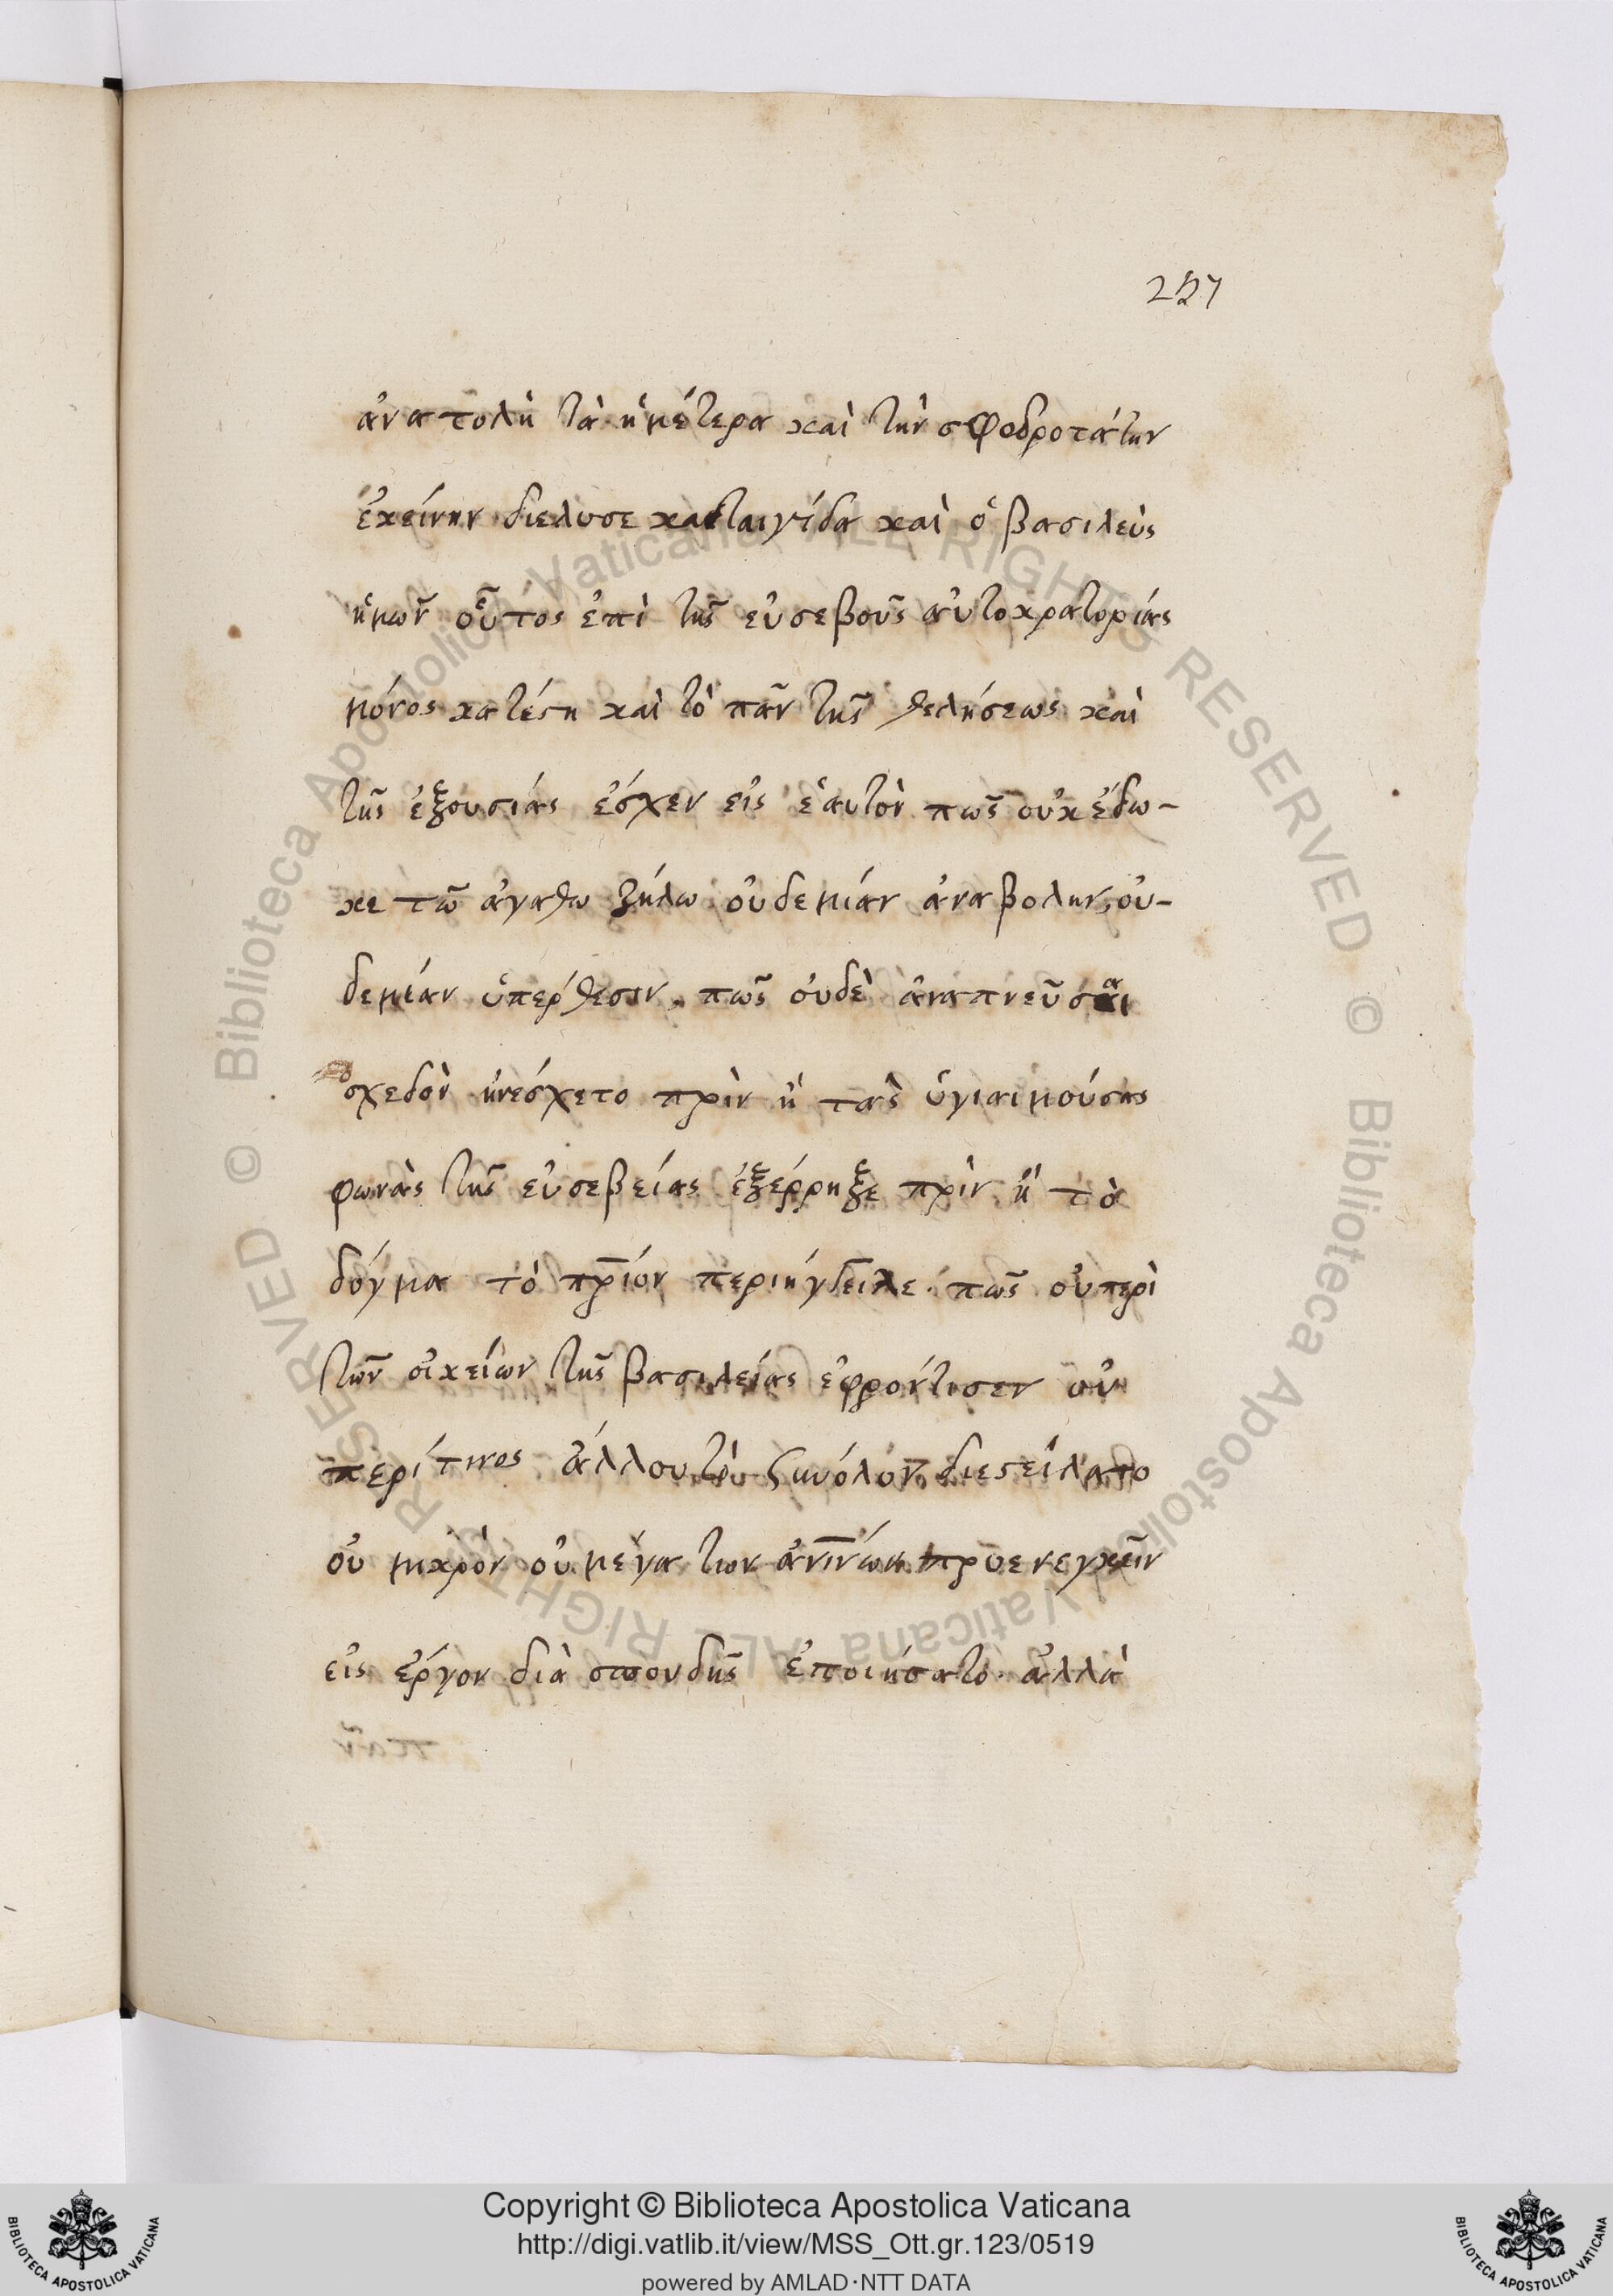 257
ἀνατολὴ τὰ ἡμέτερα καὶ τὴν σφοδροτάτην
ἐκείνην διέλυσε καταιγίδα καὶ ὁ βασιλεὺς
ἡμῶν οὗτος ἐπὶ τῆς εὐσεβοῦς αὐτοκρατορίας
μόνος κατέστη καὶ τὸ πᾶν τῆς θελήσεως καὶ
τῆς ἐξουσίας ἔσχεν εἰς ἑαυτὸν πῶς οὐκ ἔδω-
κε τῶ ἀγαθω ζήλω οὐδεμίαν ἀναβολην, οὐ-
δεμίαν ὑπέρθεσιν, πῶς οὐδὲ ἀναπνεῦσαι
σχεδὸν ἠνέσχετο πρὶν ἢ τὰς ὑγιαινούσας
φωνὰς τῆς εὐσεβείας ἐξέρρηξε πρὶν ἢ τὸ
δόγμα τὸ πρ̅ιόν περιήγγειλε. πῶς οὐ περὶ
τῶν οἰκείων τῆς βασιλείας ἐφρόντισεν οὐ
περί τινος ἄλλου τὸ συνόλον διεστείλατο
οὐ μικρὸν οὐ μέγα των προενεγκεῖν
εἰς ἔργον διὰ σπουδῆς ἐποιήσατο. ἀλλὰ
Copyright © Biblioteca Apostolica Vaticana
http://digi.vatlib.it/view/MSS_Ott.gr.123/0519
powered by AMLAD·NTT DATA
BIBLIOTECA APOSTOLICA VATICANA
BIBLIOTECA APOSTOLICA VATICANA
© Biblioteca Apostolica Vaticana ALL RIGHTS RESERVED © Biblioteca Apostolica Vaticana ALL RIGHTS RESERVED